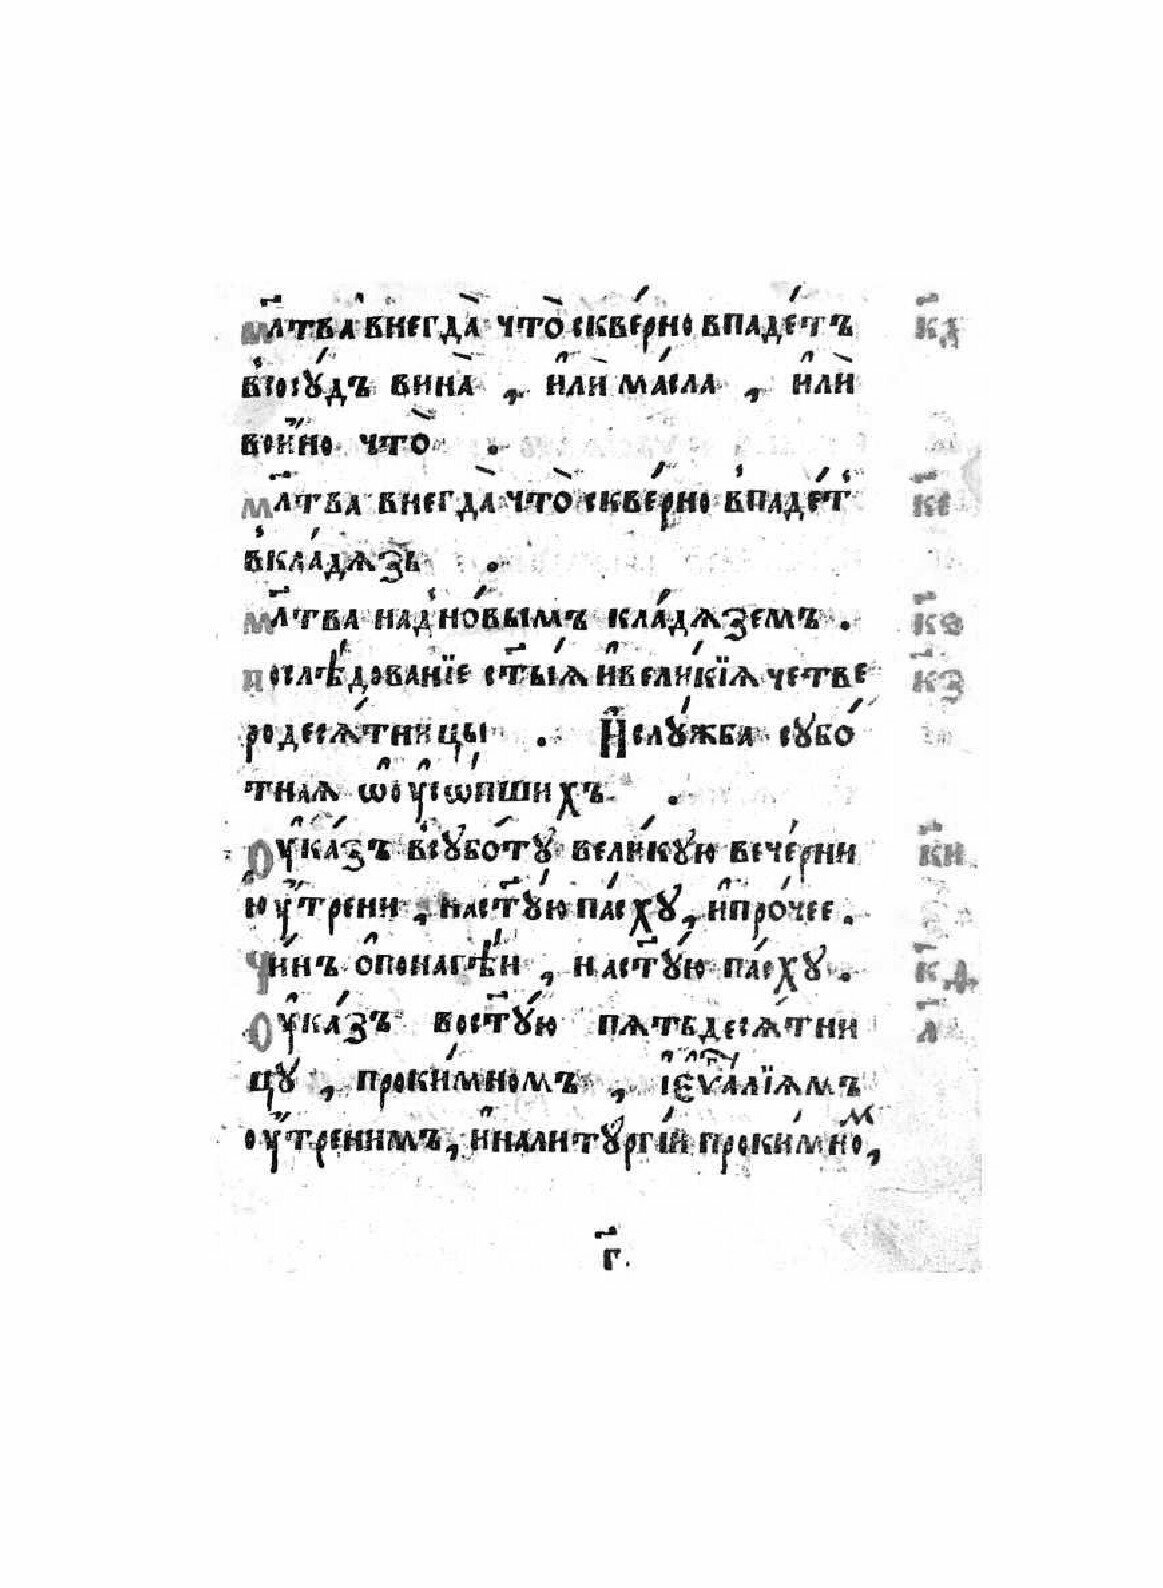 мл҃тва внегда̀ что̀ скве́рно впаде́тъ к҃д
всосу́дъ вина̀, и҆лѝ ма́сла, и҆лѝ
вои́но что̀.
мл҃тва внегда̀ что̀ скве́рно впаде́т к҃е
вкла́дѧзь.
мл҃тва над но́вымъ кла́дѧземъ. к҃ѕ
послѣ́дованїе ст҃ы́ѧ и҆вели́кїѧ четве к҃з
родесѧ́тницы. И҆слу́жба субо́
тнаѧ ѡ҆оу҆со́пшихъ.
Оу҆ка́зъ всубо́ту вели́кую вече́рни к҃и
юу҆́трени, наст҃у́ю па́сху, и҆про́чее.
Чи́нъ о҆понагѣ́и, наст҃у́ю па́сху. к҃ѳ
Оу҆ка́зъ вост҃у́ю пѧтьдесѧ́тни л҃
цу, проки́мномъ, і҆є҆ѵ҃алїѧмъ
оу҆́тренимъ, и҆налитургі́и проки́мноⷨ,
г҃.